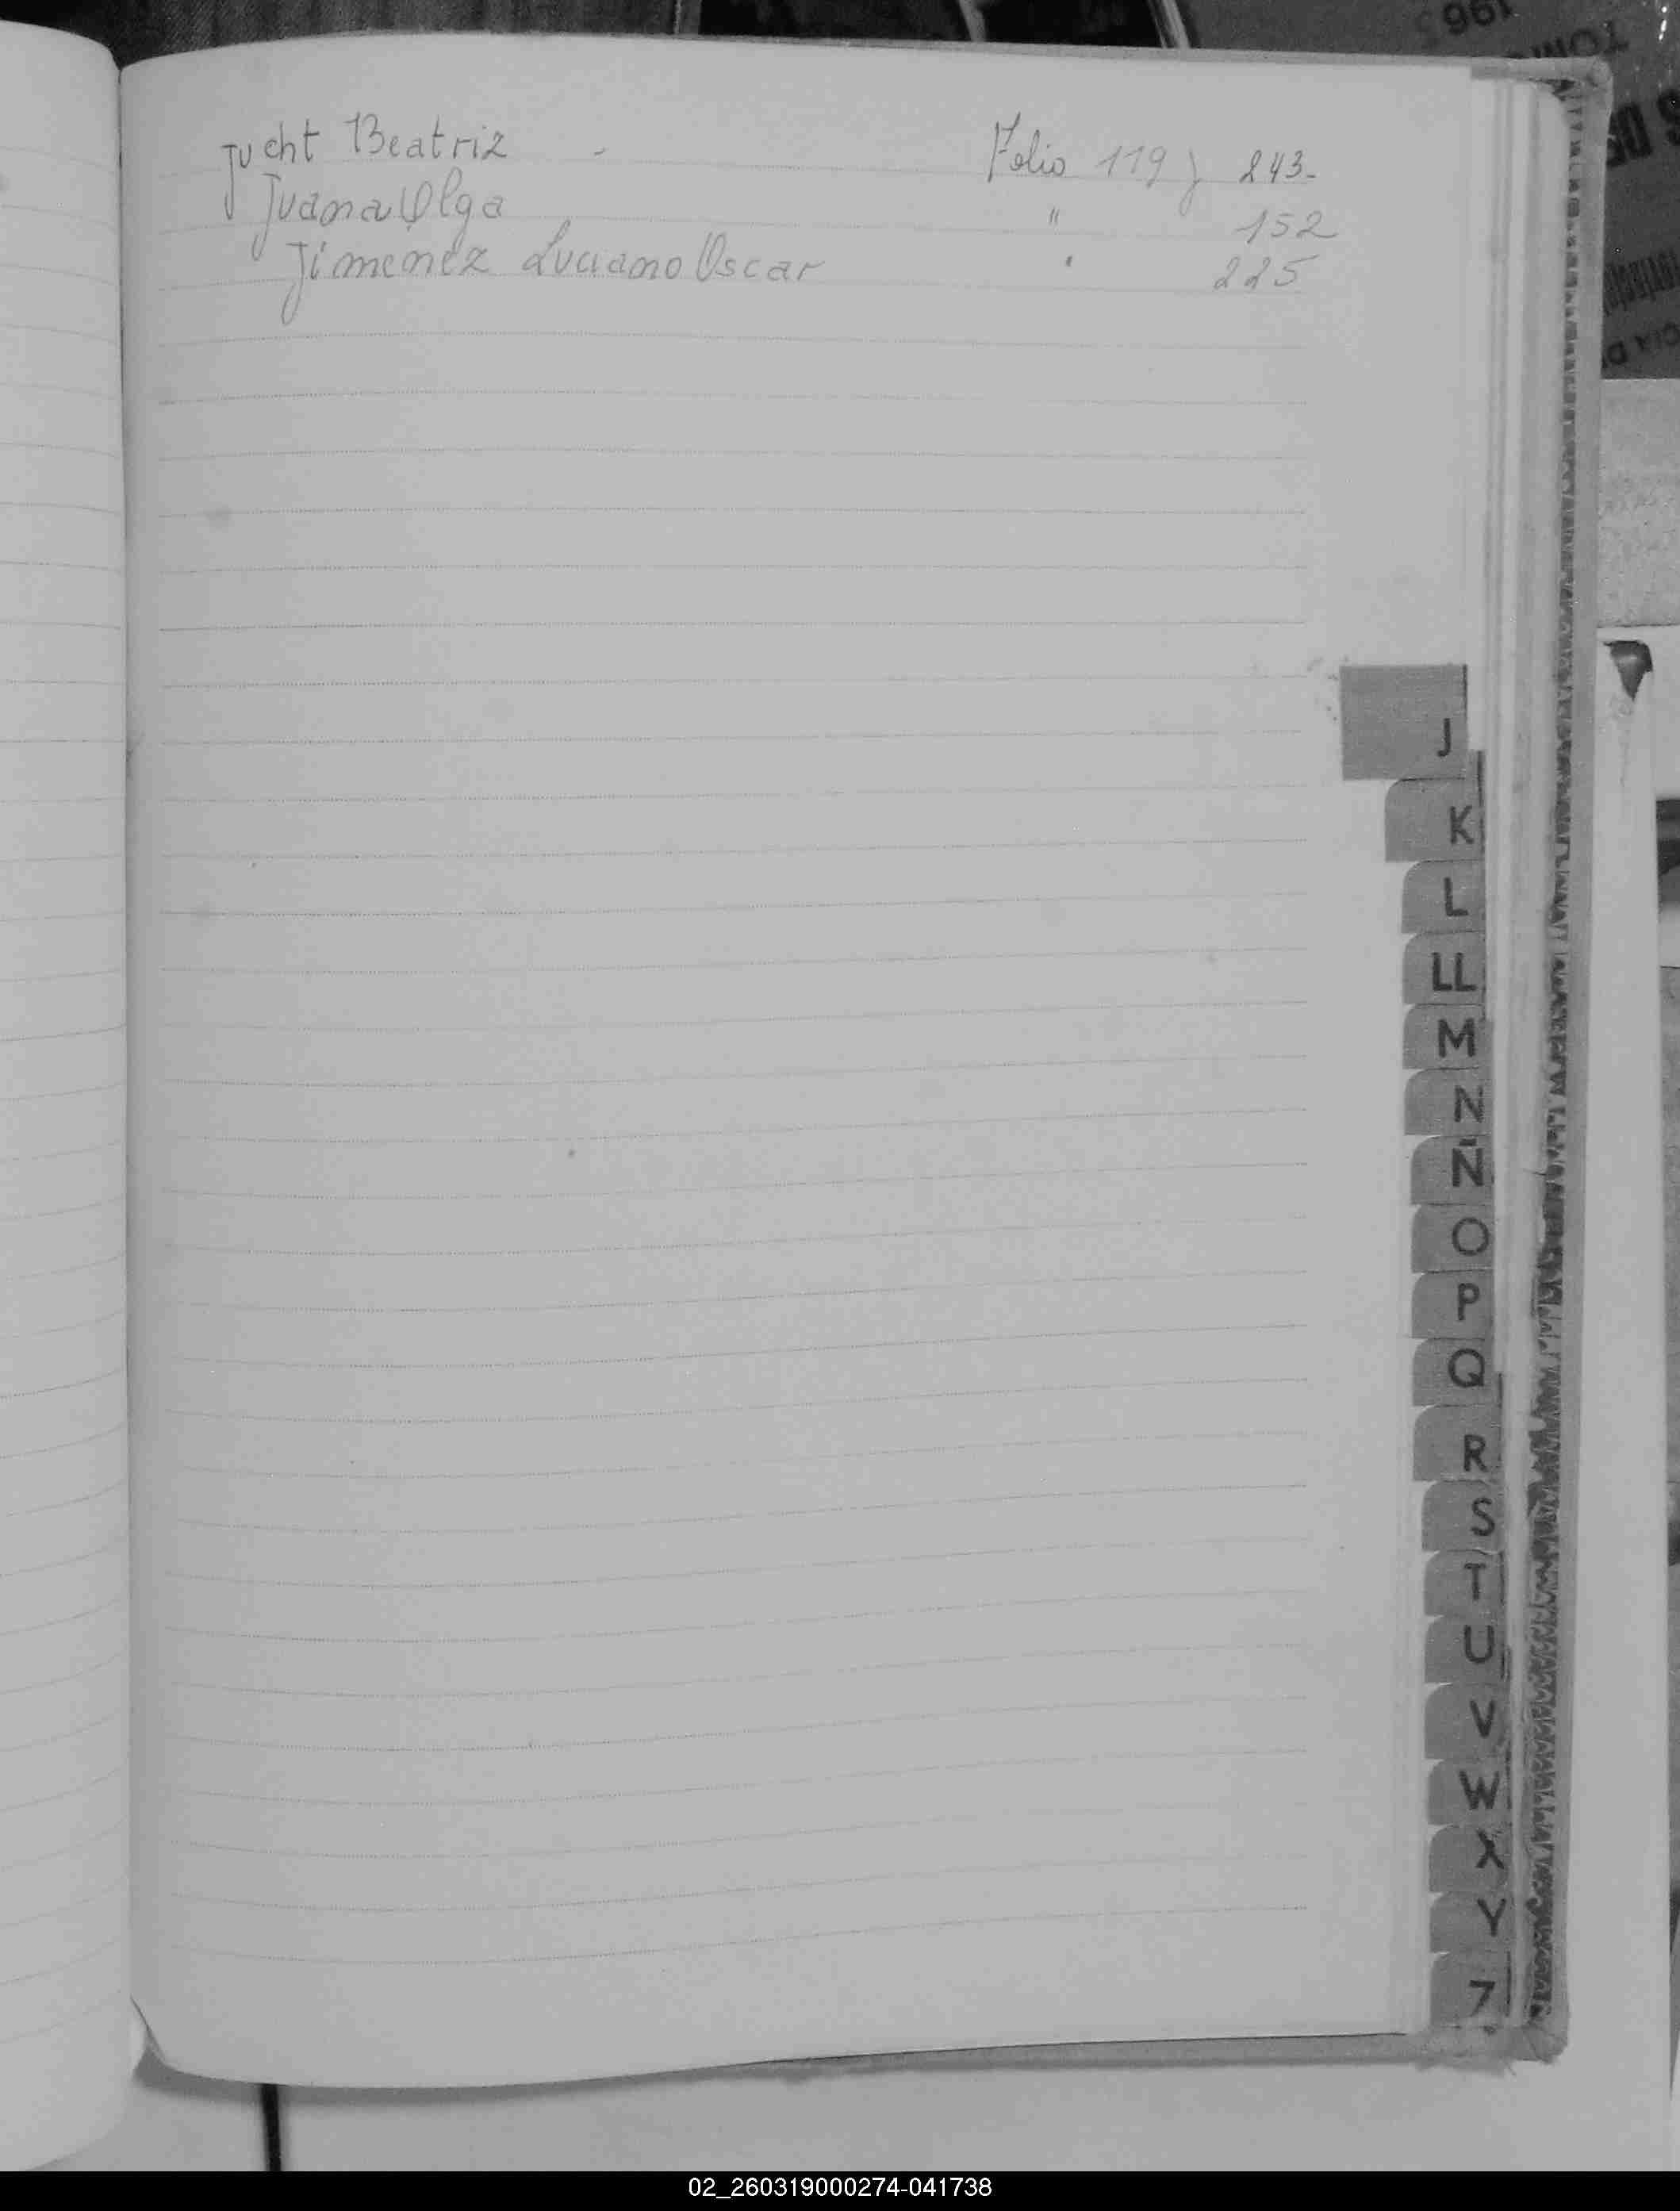 Jucht Beatriz - Folio 119 y 243-
Juana Olga " 152
Jimenez Luciano Oscar " 225
J
K
L
LL
M
N
Ñ
O
P
Q
R
S
T
U
V
W
X
Y
Z
02_260319000274-041738